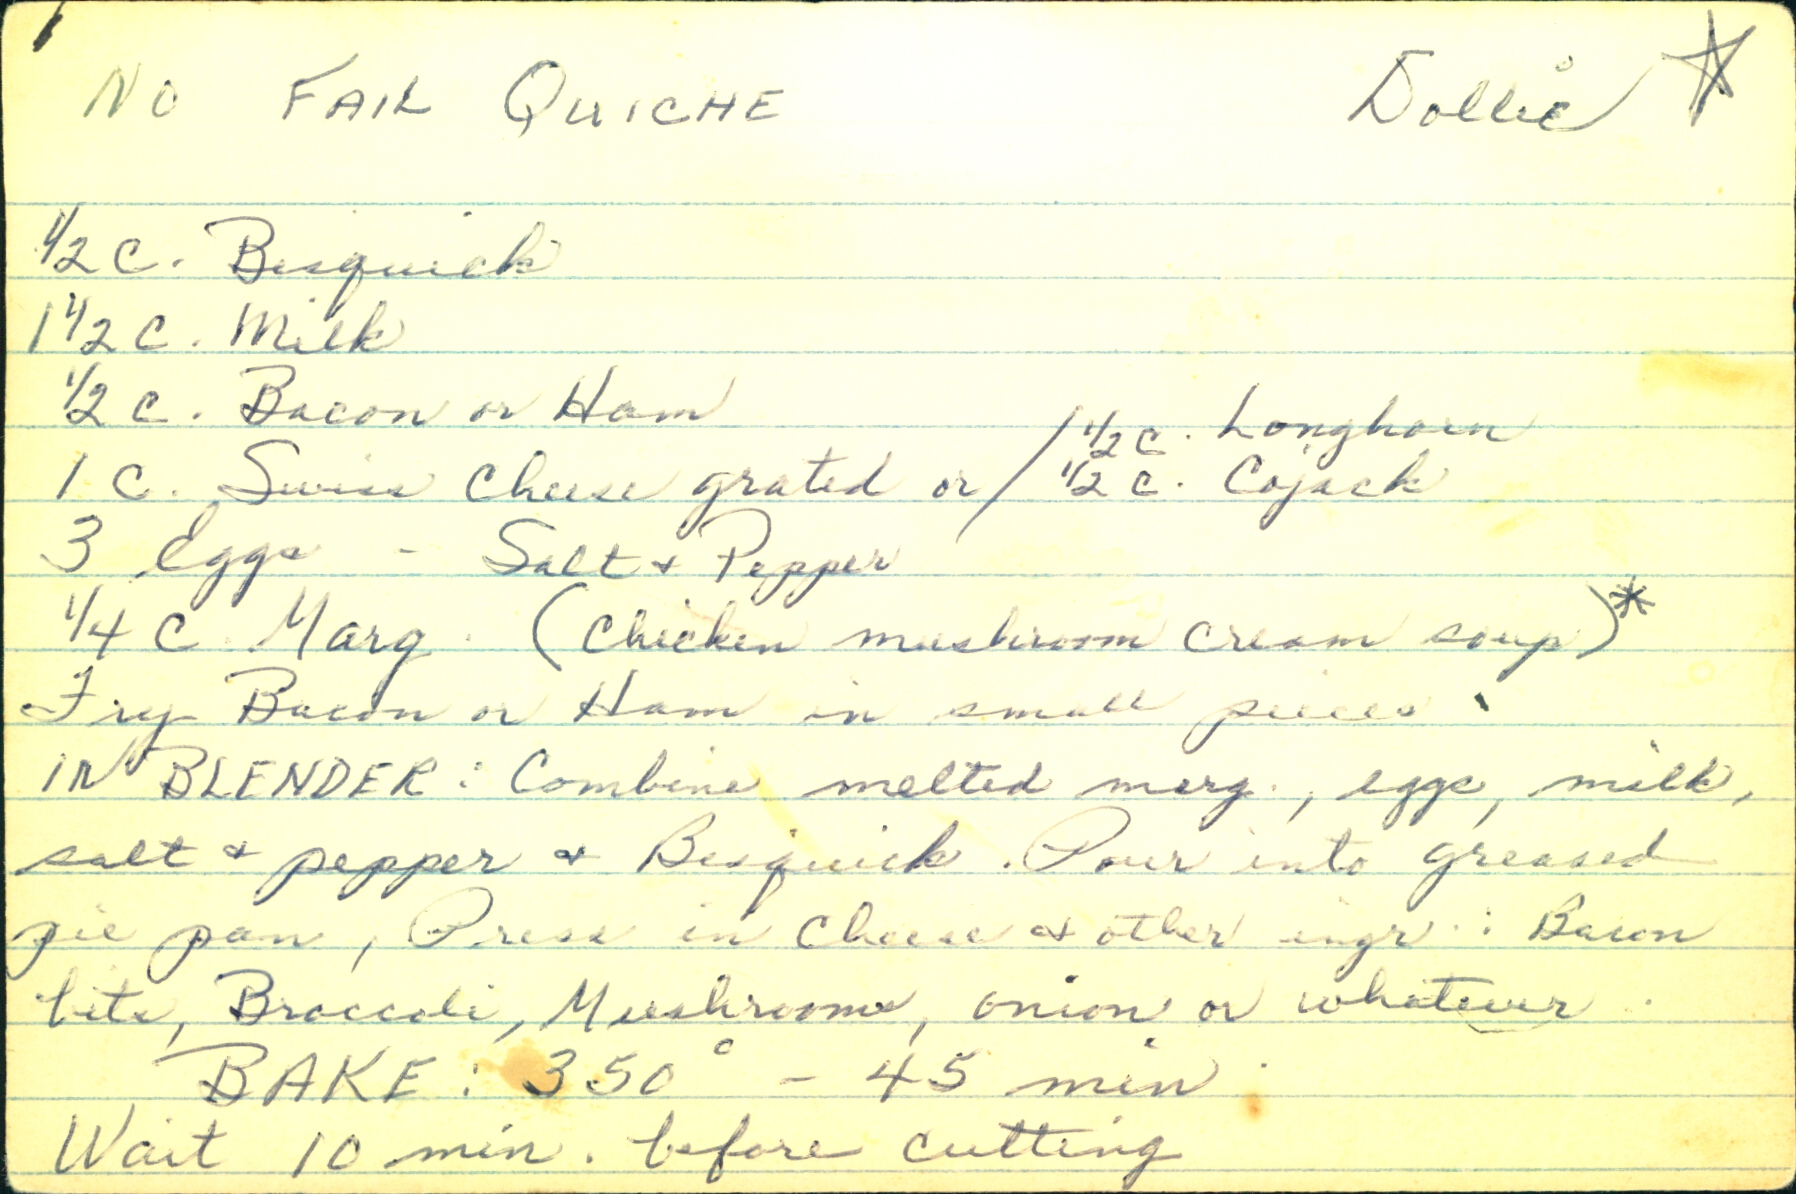 No Fail Quiche Dollie
1/2 c. Bisquick
1 1/2 c. Milk
1/2 c. Bacon or Ham
1 c. Swiss Cheese grated or / 1/2 c. Longhorn
1/2 c. Cojack
3 Eggs - Salt + Pepper
1/4 c Marg. (Chicken mushroom cream soup)*
Fry Bacon or Ham in small pieces.
IN BLENDER: Combine melted marg., eggs, milk,
salt + pepper + Bisquick. Pour into greased
pie pan, Press in Cheese + other ingr.: Bacon
bits, Broccoli, Mushrooms, onion or whatever.
BAKE: 350° - 45 min.
Wait 10 min. before cutting